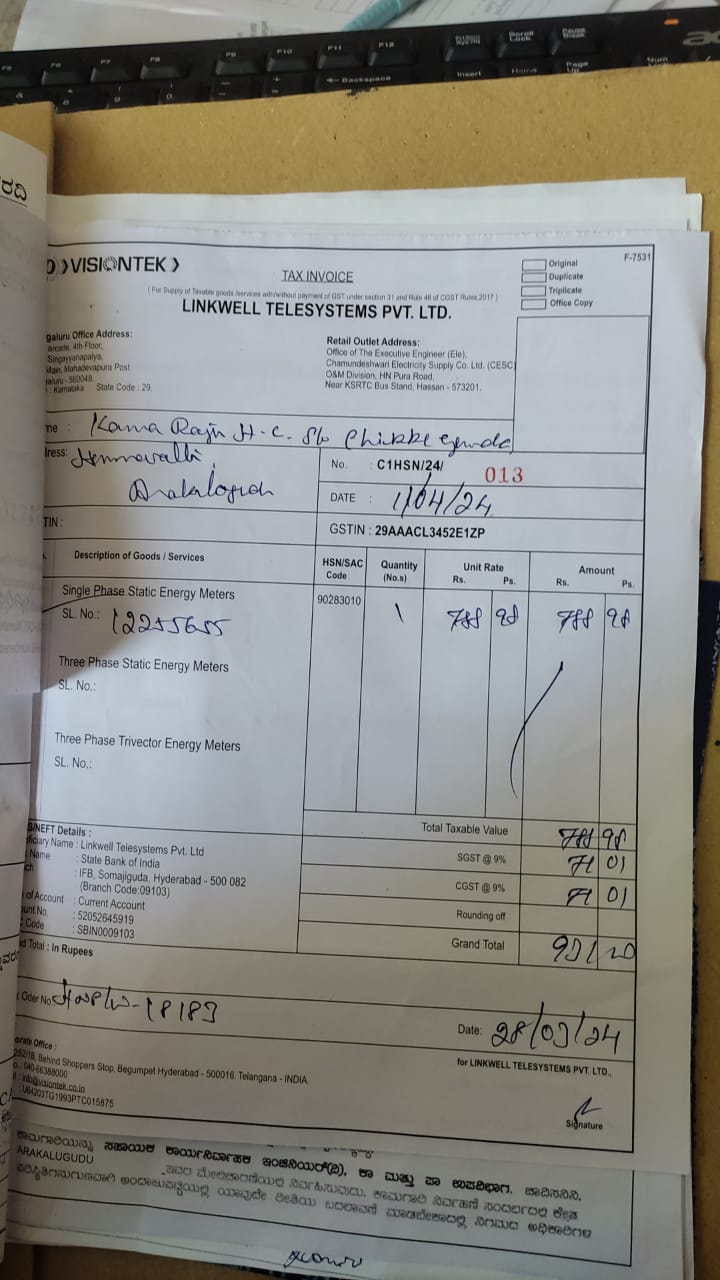 VISIONTEK
TAX INVOICE
( For Supply of Taxable goods /services with/without payment of GST under section 31 and Rule 46 of CGST Rules,2017 )
LINKWELL TELESYSTEMS PVT. LTD.
Original
Duplicate
Triplicate
Office Copy
F-7531
galuru Office Address:
arcade, 4th Floor,
Singayyanapalya,
Main, Mahadevapura Post
aluru - 560048.
: Karnataka State Code : 29.
Retail Outlet Address:
Office of The Executive Engineer (Ele),
Chamundeshwari Electricity Supply Co. Ltd. (CESC)
O&M Division, HN Pura Road,
Near KSRTC Bus Stand, Hassan - 573201.
me : Kama Raju H.C. S/o Chikke Gowda
dress:
No. : C1HSN/24/ 013
DATE : 1/04/24
TIN :
GSTIN : 29AAACL3452E1ZP
Description of Goods / Services
HSN/SAC Code
Quantity (No.s)
Unit Rate Rs. Ps.
Amount Rs. Ps.
Single Phase Static Energy Meters
90283010 1 788 98 788 98
SL. No.: 12255655
Three Phase Static Energy Meters
SL. No.:
Three Phase Trivector Energy Meters
SL. No.:
Total Taxable Value 788 98
SGST @ 9% 71 01
CGST @ 9% 71 01
Rounding off
Grand Total
S/NEFT Details :
ficiary Name : Linkwell Telesystems Pvt. Ltd
Name : State Bank of India
ch : IFB, Somajiguda, Hyderabad - 500 082
(Branch Code:09103)
of Account : Current Account
unt No. : 52052645919
Code : SBIN0009103
d Total : In Rupees
Oder No:
Date: 28/03/24
for LINKWELL TELESYSTEMS PVT. LTD.,
Signature
orate Office :
252/18, Behind Shoppers Stop, Begumpet Hyderabad - 500016. Telangana - INDIA
o : 040-66388000
il : info@visiontek.co.in
: U64203TG1993PTC015875
ಕಾಮಗಾರಿಯನ್ನು ಸಹಾಯಕ ಕಾರ್ಯನಿರ್ವಾಹಕ ಇಂಜಿನಿಯರ್(ವಿ), ಕಾ ಮತ್ತು ಪಾ ಉಪವಿಭಾಗ, ಚಾವಿಸನಿನಿ,
ARAKALUGUDU ಇವರ ಮೇಲಿಚಾರಣೆಯಲ್ಲಿ ನಿರ್ವಹಿಸುವುದು. ಕಾಮಗಾರಿ ನಿರ್ವಹಣೆ ಸಂದರ್ಭದಲ್ಲಿ ಕ್ಷೇತ್ರ
ಪರಿಸ್ಥಿತಿಗನುಗುಣವಾಗಿ ಅಂದಾಜುಪಟ್ಟಿಯಲ್ಲಿ ಯಾವುದೇ ರೀತಿಯ ಬದಲಾವಣೆ ಮಾಡಬೇಕಾದಲ್ಲಿ ನಿಗಮದ ಅಧಿಕಾರಿಗಳ